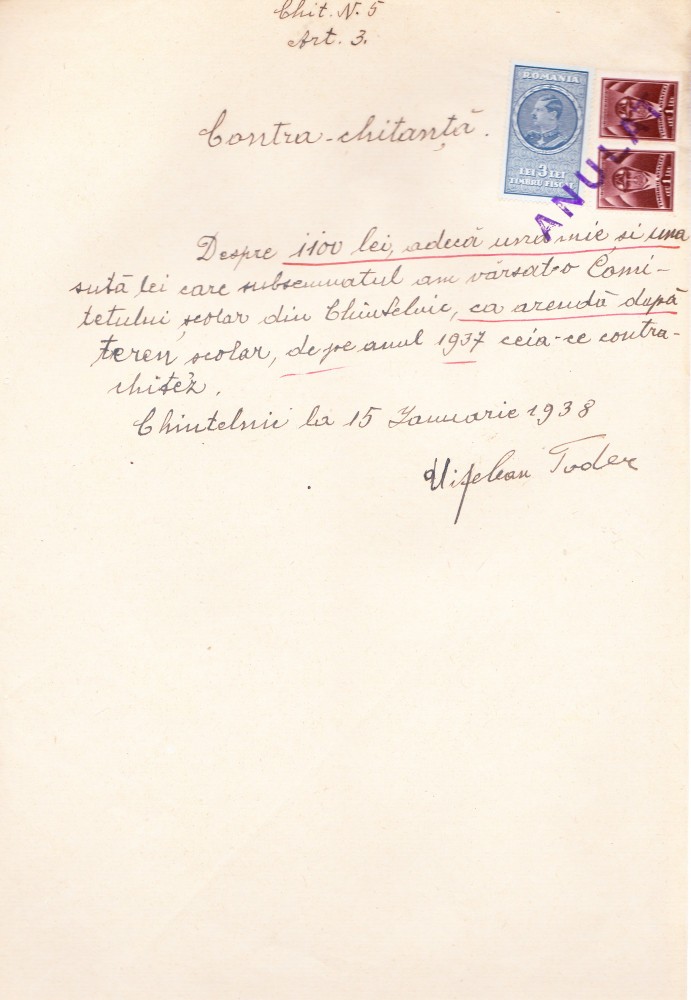 Chit. N. 5
Art. 3.
ROMANIA
LEI 3 LEI
TIMBRU FISCAL
LEI 1 LEI
LEI 1 LEI
ANULAT
Contra-chitanță.
Despre 1100 lei, adecă una mie si una
sută lei care subsemnatul am vărsat-o Comi-
tetului școlar din Chintelnic, ca arendă după
teren școlar, de pe anul 1937 ceia-ce contra-
chitez.
Chintelnic la 15 Ianuarie 1938
Vițelean Toder